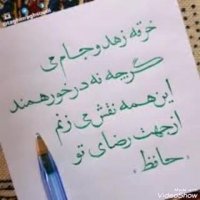 خرقه زهد و جام می
گرچه نه درخور همند
این همه نقش می زنم
از جهت رضای تو
«حافظ»
VideoShow